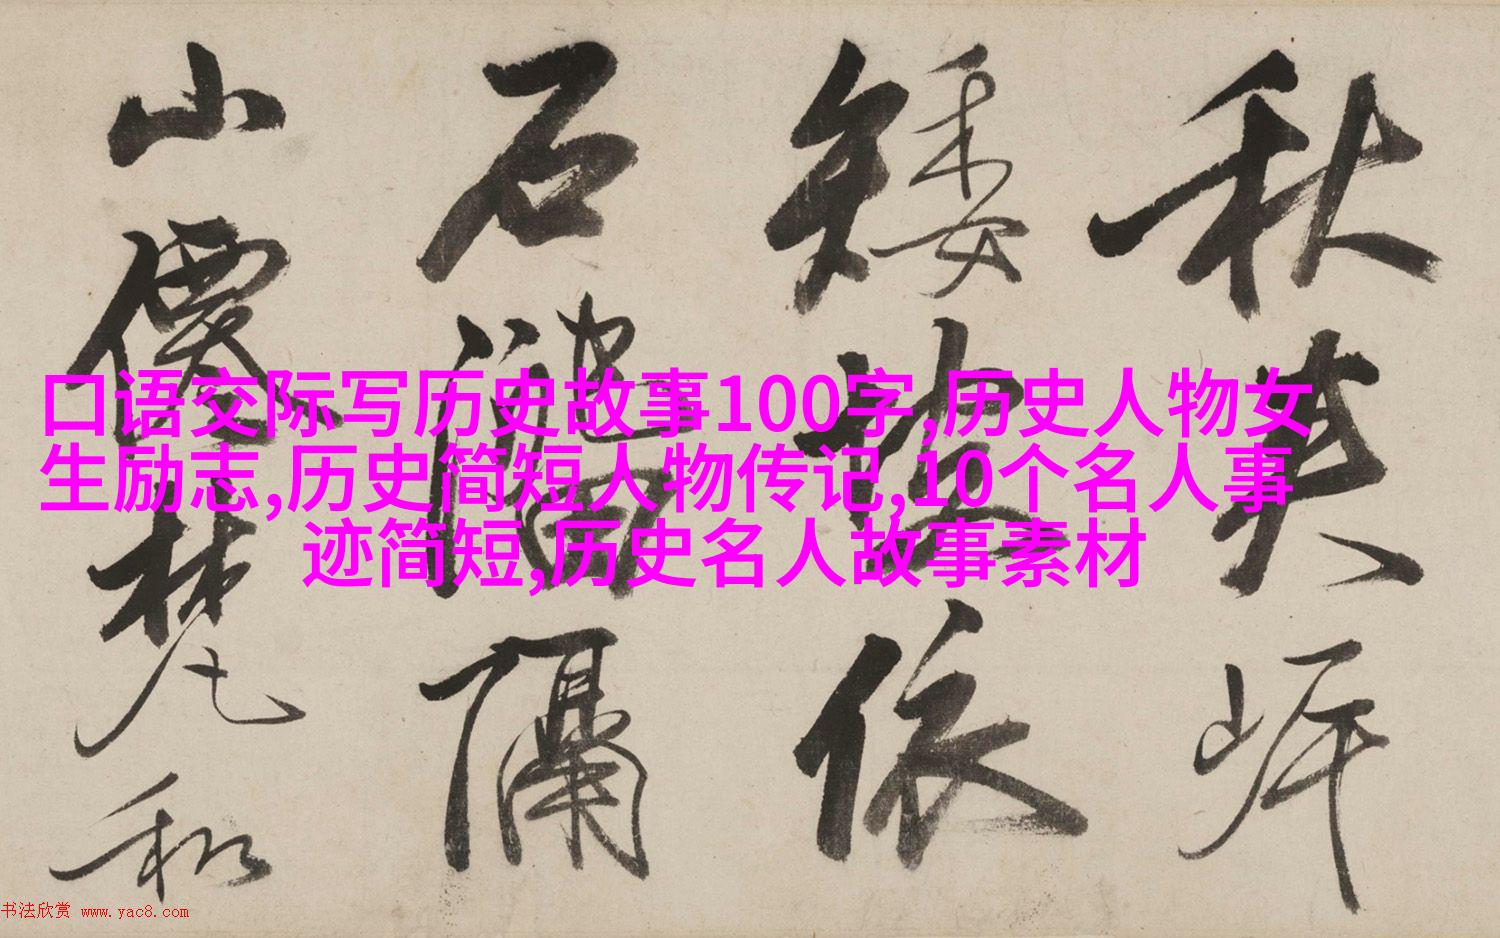 口语交际写历史故事100字,历史人物女
生励志,历史简短人物传记,10个名人事
迹简短,历史名人故事素材
秋
矮 依
石 隔
山僊梵和
书法欣赏 www.yac8.com